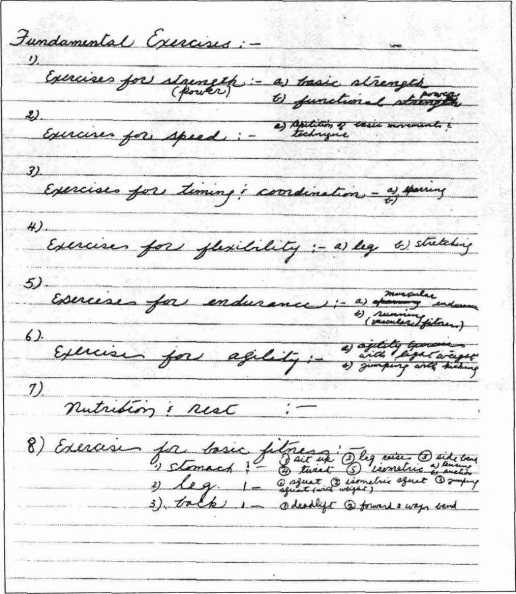 Fundamental Exercises :-
1).
Exercises for strength :- a) basic strength
(power) b) functional strength power
2)
Exercises for speed :- a) Repetition of basic movements &
technique
3)
Exercises for timing & coordination - a) sparring
b)
4)
Exercises for flexibility :- a) leg b) stretching
5)
Exercises for endurance :- a) muscular endurance
b) running
(vascular fitness)
6)
Exercise for agility :- a) agility
with light weight
b) jumping with kicking
7)
Nutrition & rest :-
8) Exercise for basic fitness :-
1) stomach :- ① sit up ② leg raise ③ side bend
④ twist ⑤ isometric a)
2) leg :- ① squat ② isometric squat ③ jumping
squat (with weight)
3). back :- ① deadlift ② forward & ways bend